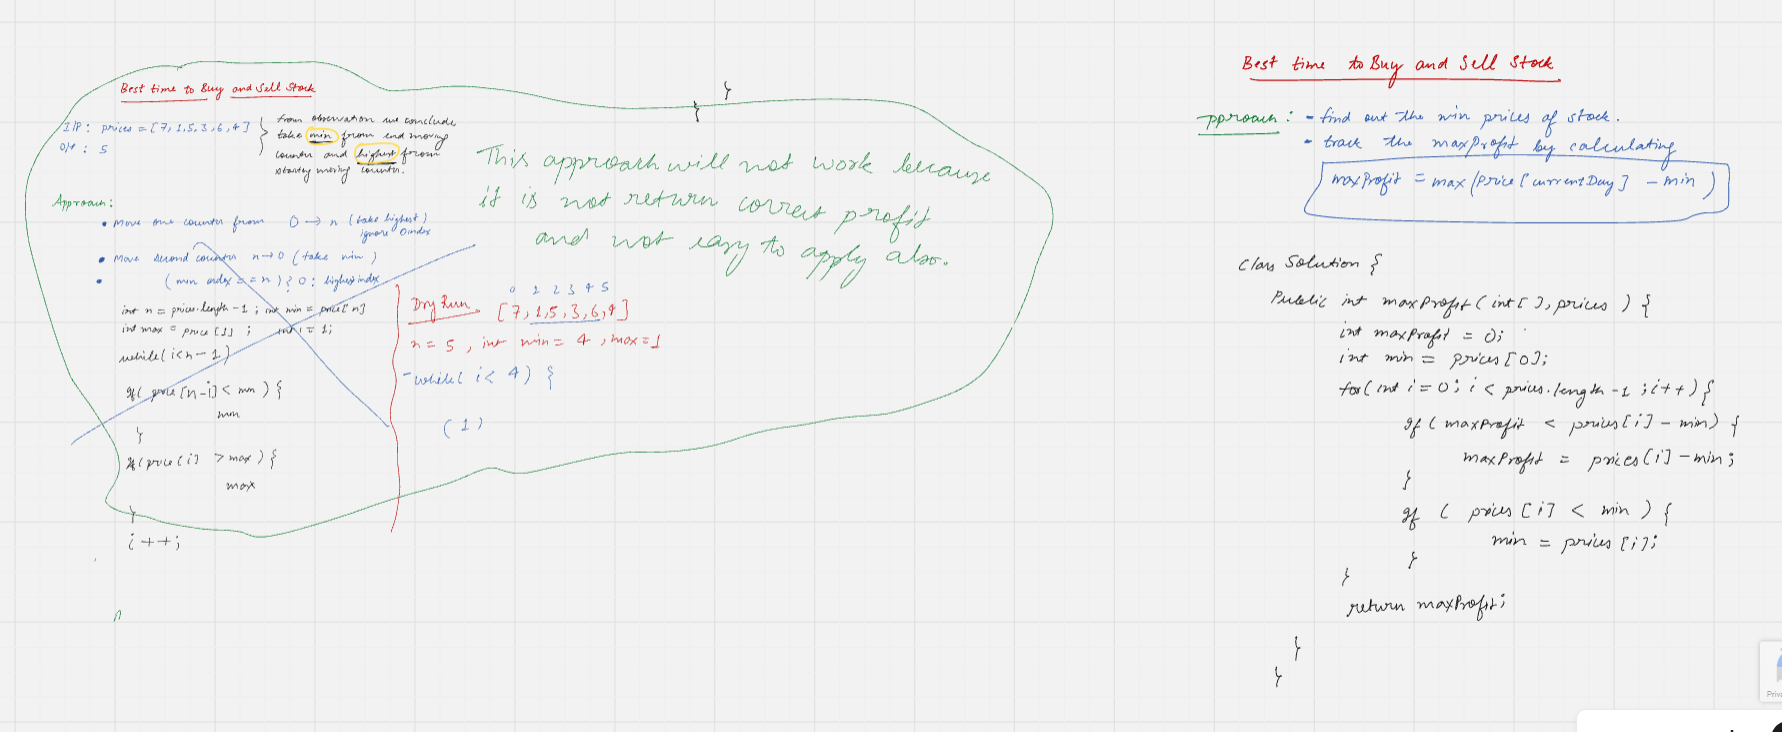 Best time to Buy and Sell Stock
I/P : prices = [7, 1, 5, 3, 6, 4]
O/P : 5
from observation we conclude
take min from end moving
counter and highest from
starting moving counter.
Approach:
• Move one counter from 0 → n (take highest)
ignore 0 index
• Move second counter n → 0 (take min)
• (min index == n) ? 0 : highest index
int n = prices.length - 1 ; int min = price[n]
int max = price[1] ; int i = 1;
while(i<n-1)
if( price[n-i] < min ) {
min
}
if(price[i] > max) {
max
}
i++;
n
}
}
This approach will not work because
it is not return correct profit
and not easy to apply also.
Dry Run
0 1 2 3 4 5
[7, 1, 5, 3, 6, 4]
n = 5 , int min = 4 , max = 1
- while( i < 4) {
(1)
Best time to Buy and Sell Stock
pproach :
- find out the min prices of stock.
• track the maxProfit by calculating
maxProfit = max(Price[currentDay] - min)
class Solution {
Public int maxProfit( int[], prices ) {
int maxProfit = 0;
int min = prices[0];
for(int i = 0; i < prices.length -1 ; i++) {
if ( maxProfit < prices[i] - min) {
maxProfit = prices[i] - min;
}
if ( prices[i] < min ) {
min = prices[i];
}
}
return maxProfit;
}
}
Priv